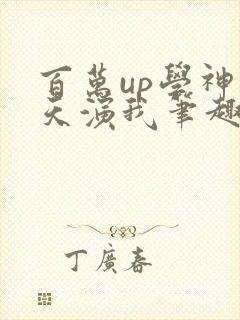 百萬up學神
天演我筆趣
丁廣春